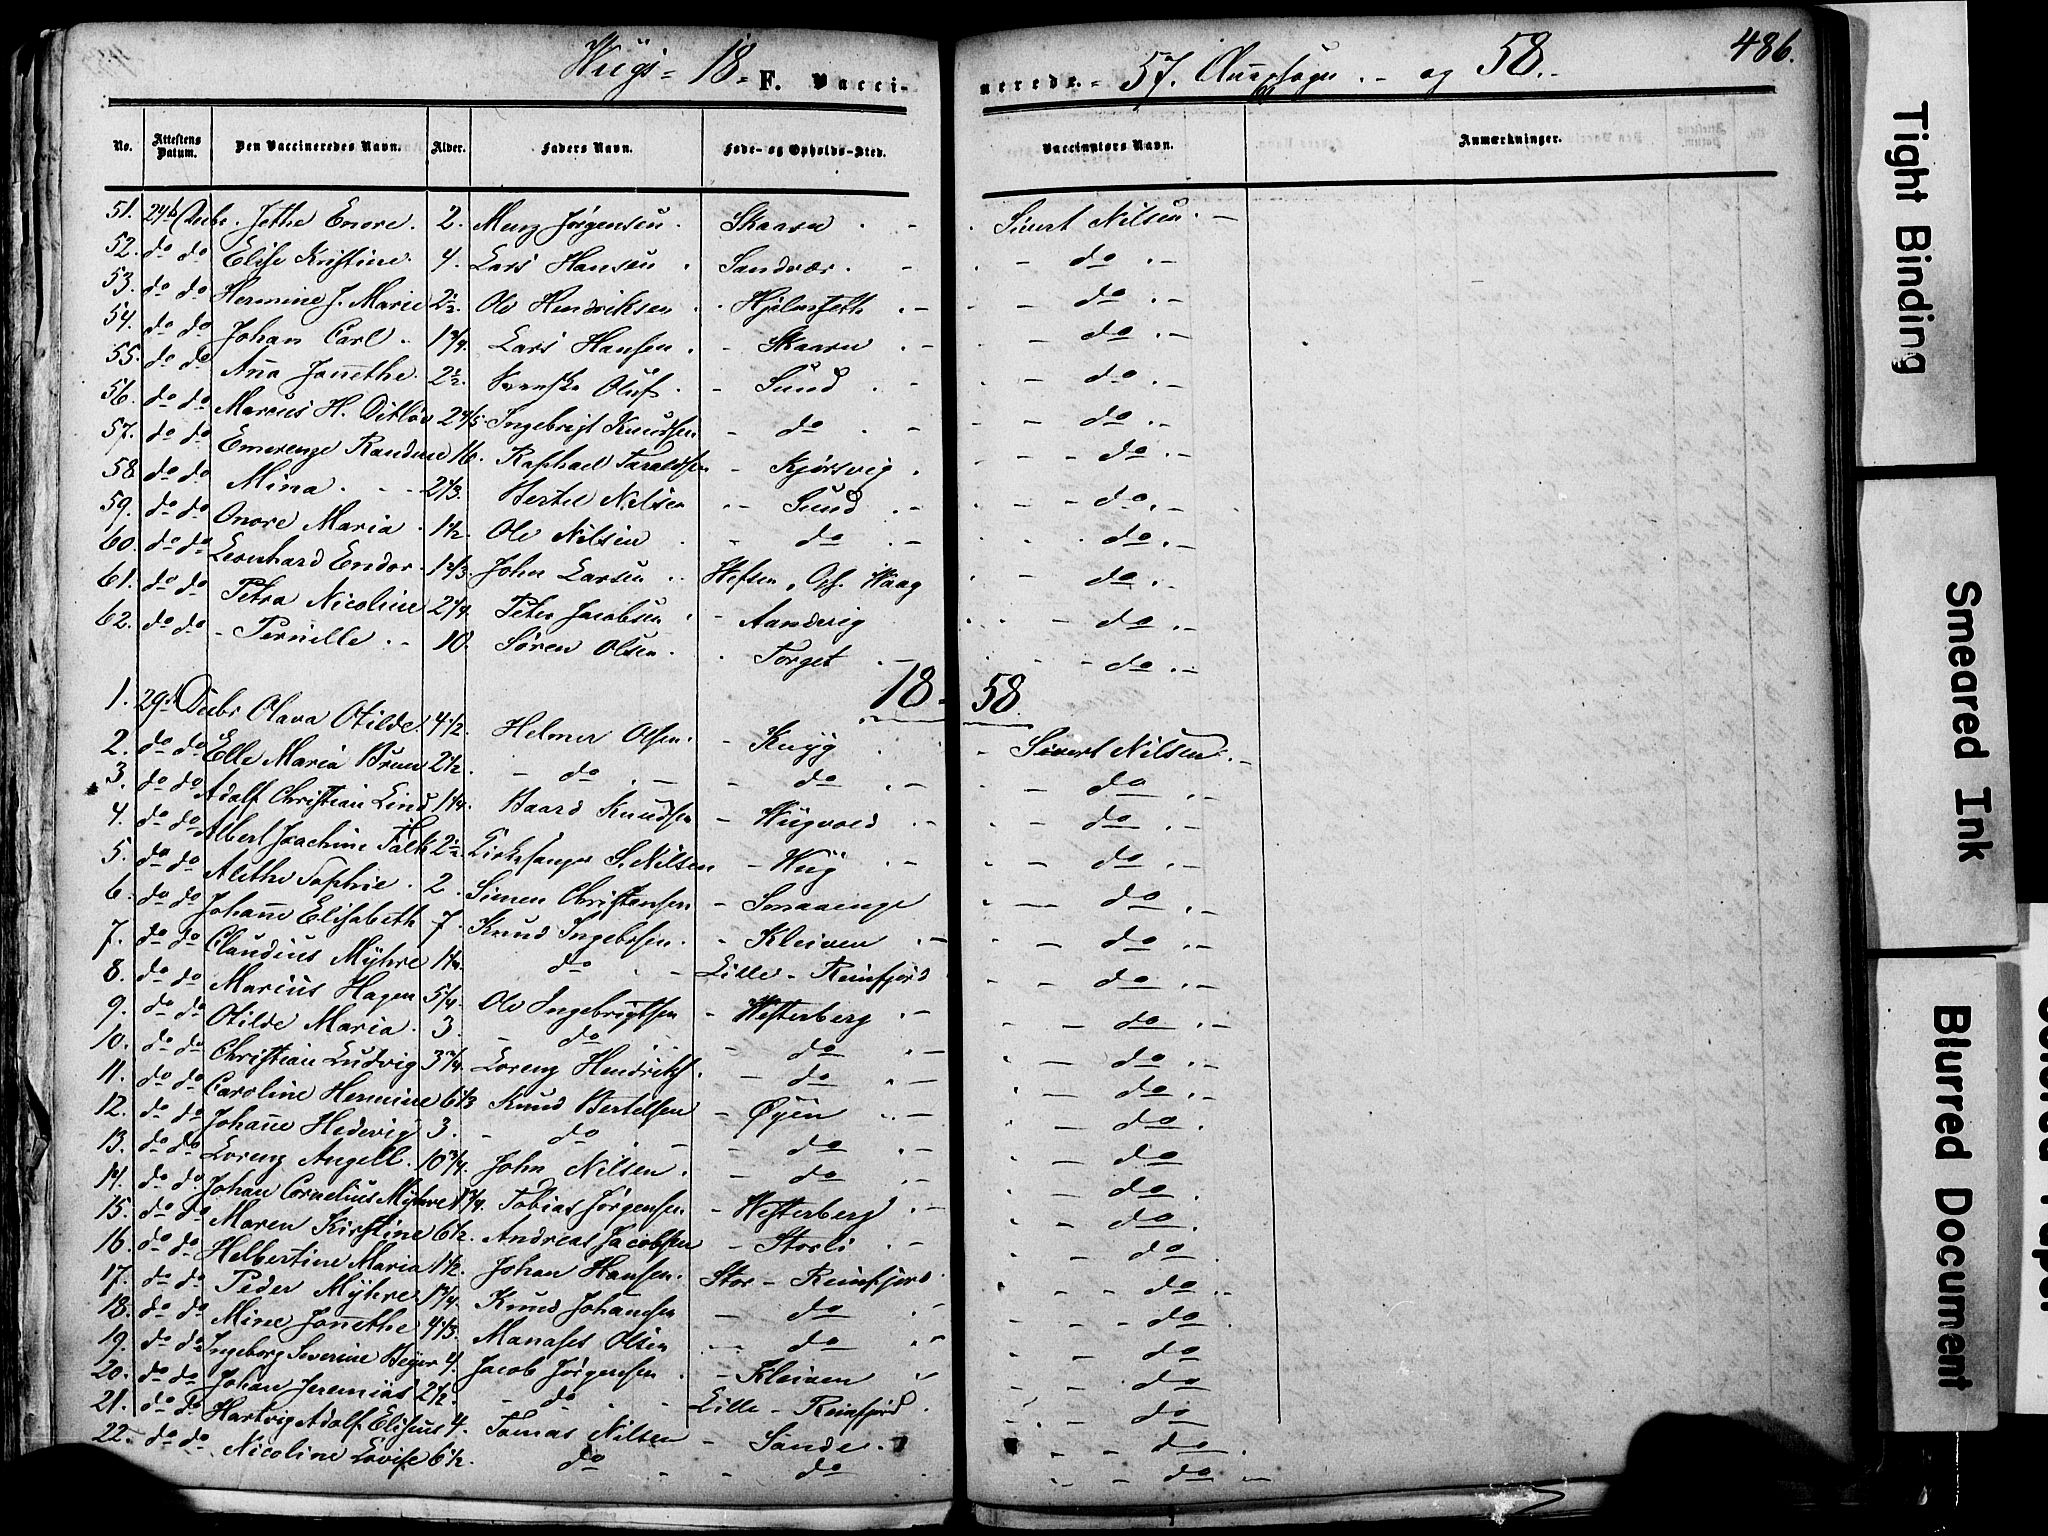 Wiigs - 18 - F. Vacci-
nerede. - 57. og 58. -
486.
No. Attestens Datum. Den Vaccineredes Navn. Alder. Faders Navn. Føde- og Opholds-Sted. Vaccinators Navn. Anmærkninger.
51. 24d Decbr. Jethe Enore. 2. Jørgensen. Skaaren. - Sivert Nilsen. -
52. do do Elise Kristine. 4. Lars Hansen. Sandvær. - do. -
53. do do Hermine J. Marie 2½ Ole Hendriksen. Hjelmseth. - do. -
54. do do Johan Carl. 1¾. Lars Hansen. - Skaaren. - do. -
55. do do Ana Jonethe. 2½. Svenske Oluf. - Sund. - do. -
56. do do Marius H. Ditlev 2⅘ Ingebrigt Knudsen - do. - do. -
57. do do Emerenze 16. Raphael Taraldsen - Kjørsvig. - do. -
58. do do Mina. - - 2⅓. Bertel Nilsen - Sund. - do. -
59. do do Onore Maria. 1½. Ole Nilsen. - do. - do. -
60. do do Leonhard Endor. 1⅓. John Larsen. Hefsen, Waag - do. -
61. do do Petra Nicoline 2¼. Peter Jacobsen. - Aandvig - do. -
62. do do - Pernille. - 10. Søren Olsen. Torget. - do. -
18 - 58
1. 29d Decbr Olava Otilde. 4½. Helmer Olsen. - - Sivert Nilsen. -
2. do do Elle Maria Bruun 2½. - do. - - do. - - do. -
3. do do Adolf Christian Lind 1¼. Baard Knudsen - Wiigvold. - - do. -
4. do do Albert Joachim Falk 2½ Kirkesanger S. Nilsen - Wiig. - - do. -
5. do do Alethe Sophie. 2. Simen Christensen - Smaaenge - do. -
6. do do Johane Elisabeth 7. Knud Ingebrsen. - Kleiven. - - do. -
7. do do Claudius Myhre 1¼. do. - Lille - Reinfjord - do. -
8. do do Marius Hagen 5/4. Ole Ingebrigtsen - Westerberg. - - do. -
9. do do Otilde Maria. 3. - do. - do. - - do. -
10. do do Christian Ludvig 3¾. Lorenz Hendriks. - do. - - do. -
11. do do Caroline Hermine 6⅓ Knud Bertelsen - Øyen. - - do.
12. do do Johane Hedevig 3. - do - - do. - - do
13. do do Lorenz Angell. 10¾. John Nilsen. - do. - - do.
14. do do Johan Cornelius Myhre 1¾. Tobias Jørgensen. - Westerberg. - - do.
15. do do Maren Kirstine 6½. Andreas Jacobsen - Storli. - - do.
16. do do Helbertine Maria 1½. Johan Hansen. Stor - Reinfjord. - do. -
17. do do Peder Myhre 1¼. Knud Johansen - do - - do.
18. do do Mine Jonethe 4⅓. Manases Olsen - do - - do
19. do do Ingeborg Severine Beyer 4. Jacob Jørgensen. - Kleiven - - do
20. do do Johan Jeremias 2½. - do. - Lille - Reinfjord. - do
21. do do Hartvig Adolf Eliseus 4. Tomas Nilsen - Sande. - - do.
22. do do Nicoline Lovise 6½. do - - do - - do -
Tight Binding
Smeared Ink
Blurred Document